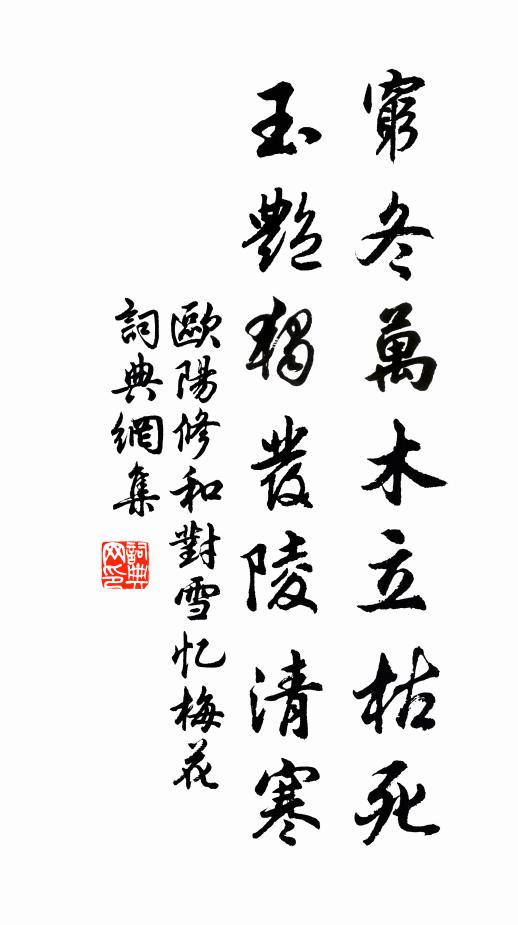 窮冬萬木立枯死
玉艷獨發陵清寒
歐陽修和對雪忆梅花
詞典網集
詞典网印